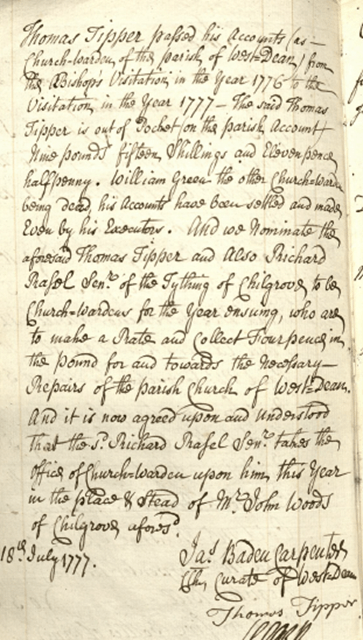 Thomas Tipper passed his Accounts (as
Church-warden of the parish of West-Dean) from
the Bishop's Visitation in the Year 1776 to the
Visitation in the Year 1777 — The said Thomas
Tipper is out of Pocket (on the parish Account
Nine pounds fifteen Shillings and Elevenpence
halfpenny. William Green the other Church-Warden
being dead, his Accounts have been settled and made
Even by his Executors. And we Nominate the
aforesaid Thomas Tipper and Also Prichard
Rasel Senr. of the Tything of Chilgrove to be
Church-wardens for the Year ensuing, who are
to make a Rate and Collect Fourpence in
the pound for and towards the Necessary—
Repairs of the parish Church of West-Dean.
And it is now agreed upon and Understood
that the Sd. Prichard Rasel Senr. takes the
office of Church-Warden upon him, this Year
in the place & Stead of Mr. John Woods
of Chilgrove aforesd.
18th July 1777. Jas. Baden Carpenter
Curate of West-Dean
Thomas Tipper